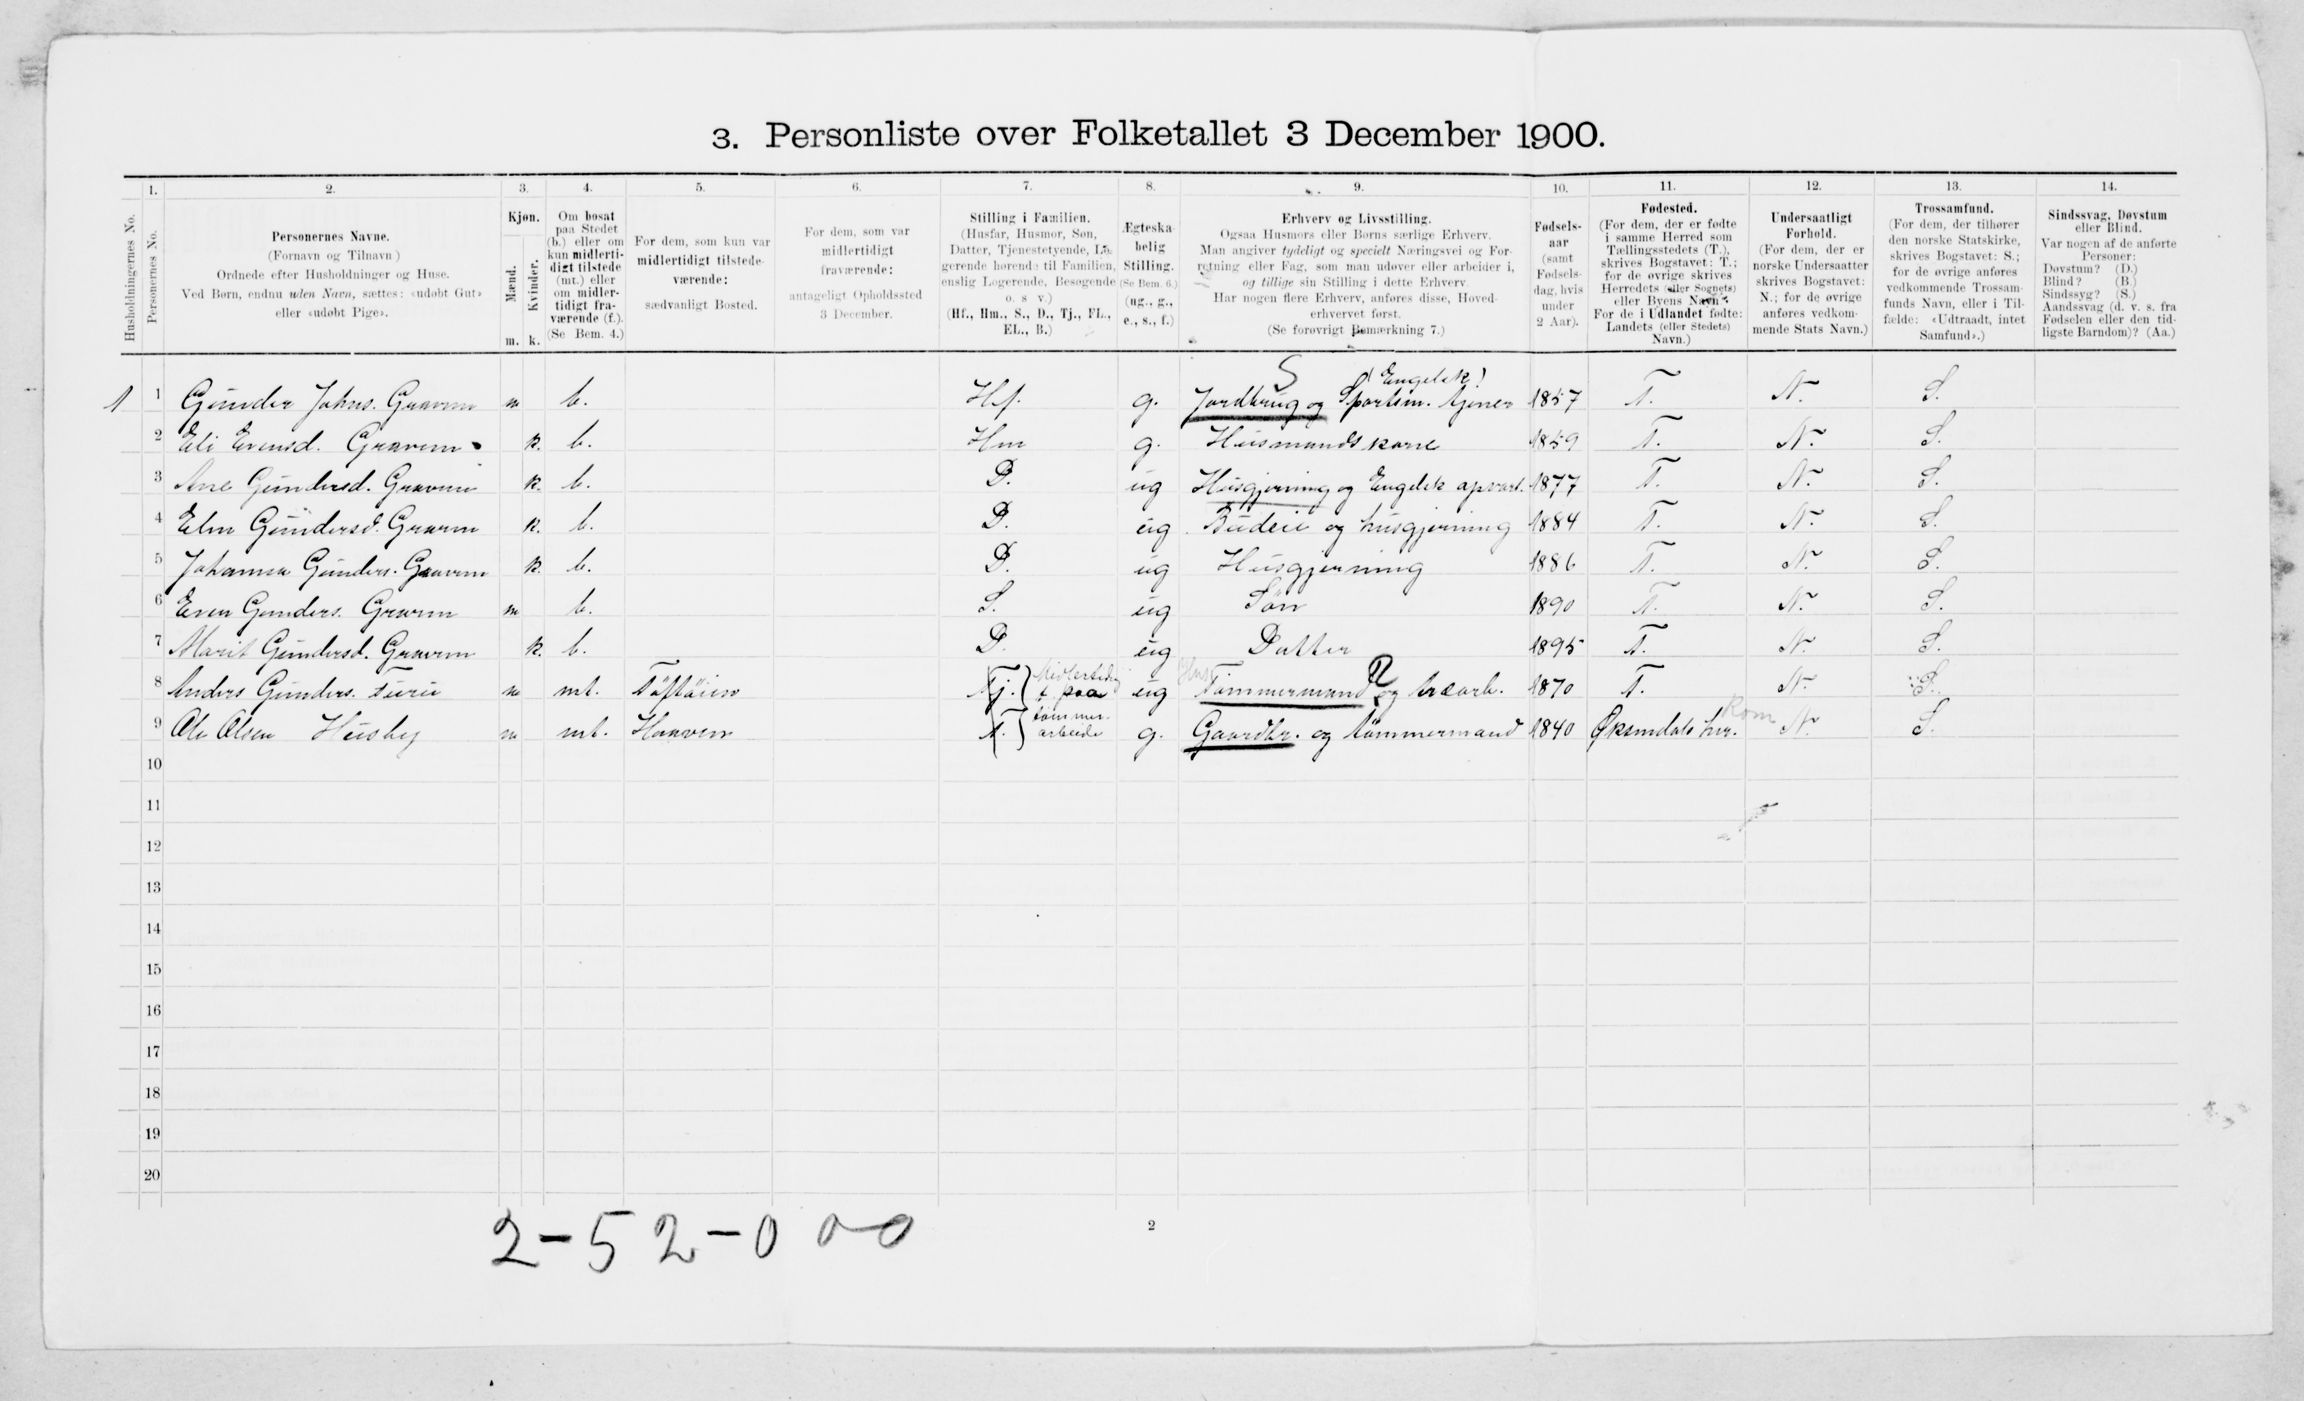 3. Personliste over Folketallet 3 December 1900.
1. 2. 3. 4. 5. 6. 7. 8. 9. 10. 11. 12. 13. 14.
Husholdningernes No.
Personernes No.
Personernes Navne.
(Fornavn og Tilnavn)
Ordnede efter Husholdninger og Huse.
Ved Børn, endnu uden Navn, sættes: «udøbt Gut»
eller «udøbt Pige».
Kjøn.
Mænd.
Kvinder.
m. k.
Om bosat
paa Stedet
(b.) eller om
kun midlerti-
digt tilstede
(mt.) eller
om midler-
tidigt fra-
værende (f.).
(Se Bem. 4.)
For dem, som kun var
midlertidigt tilstede-
værende:
sædvanligt Bosted.
For dem, som var
midlertidigt
fraværende:
antageligt Opholdssted
3 December.
Stilling i Familien.
(Husfar, Husmor, Søn,
Datter, Tjenestetyende, Lo-
gerende hørende til Familien,
enslig Logerende, Besøgende
o. s v.)
(Hf., Hm., S., D., Tj., FL.,
EL., B.)
Ægteska-
belig
Stilling.
(Se Bem. 6.)
(ug., g.,
e., s., f.)
Erhverv og Livsstilling.
Ogsaa Husmors eller Børns særlige Erhverv.
Man angiver tydeligt og specielt Næringsvei og For-
retning eller Fag, som man udøver eller arbeider i,
og tillige sin Stilling i dette Erhverv.
Har nogen flere Erhverv, anføres disse, Hoved-
erhvervet først.
(Se forøvrigt Bemærkning 7.)
Fødsels-
aar
(samt
Fødsels-
dag, hvis
under
2 Aar).
Fødested.
(For dem, der er fødte
i samme Herred som
Tællingsstedets (T.),
skrives Bogstavet: T.;
for de øvrige skrives
Herredets (eller Sognets)
eller Byens Navn.
For de i Udlandet fødte:
Landets (eller Stedets)
Navn.)
Undersaatligt
Forhold.
(For dem, der er
norske Undersaatter
skrives Bogstavet:
N.; for de øvrige
anføres vedkom-
mende Stats Navn.)
Trossamfund.
(For dem, der tilhører
den norske Statskirke,
skrives Bogstavet: S.;
for de øvrige anføres
vedkommende Trossam-
funds Navn, eller i Til-
fælde: «Udtraadt, intet
Samfund».)
Sindssvag, Døvstum
eller Blind.
Var nogen af de anførte
Personer:
Døvstum? (D.)
Blind? (B.)
Sindssyg? (S.)
Aandssvag (d. v. s. fra
Fødselen eller den tid-
ligste Barndom)? (Aa.)
S (Engelsk)
1 1 Gunder Johns. Gravem m b. Hf. g. Jordbrug og Sportsm. tjener 1857 T. N. S.
2 Eli Evensd. Gravem k. b. Hm g. Husmandskone 1859 T. N. S.
3 Ane Gundersd. Gravem k. b. D. ug Husgjerning og Engelsk opvart. 1877 T. N. S.
4 Elen Gundersd. Gravem k. b. D. ug Budeie og husgjerning 1884 T. N. S.
5 Johanna Gunders. Gravem k. b. D. ug Husgjerning 1886 T. N. S.
6 Even Gunders. Gravem m b. S. ug Søn 1890 T. N. S.
7 Marit Gundersd. Gravem k. b. D. ug Datter 1895 T. N. S.
8 Anders Gunders. Furu m mt. Töftöien Tj. Midlertidig t. paa ug Tømmermand og træarb. 1870 T. N. S.
9 Ole Olsen Husby m mt. Haaven T. tømmer- arbeide g. Gaardbr. og tømmermand 1840 Øksendals her. Rom N. S.
10
11
12
13
14
15
16
17
18
19
20
2-52-0 0-0
2